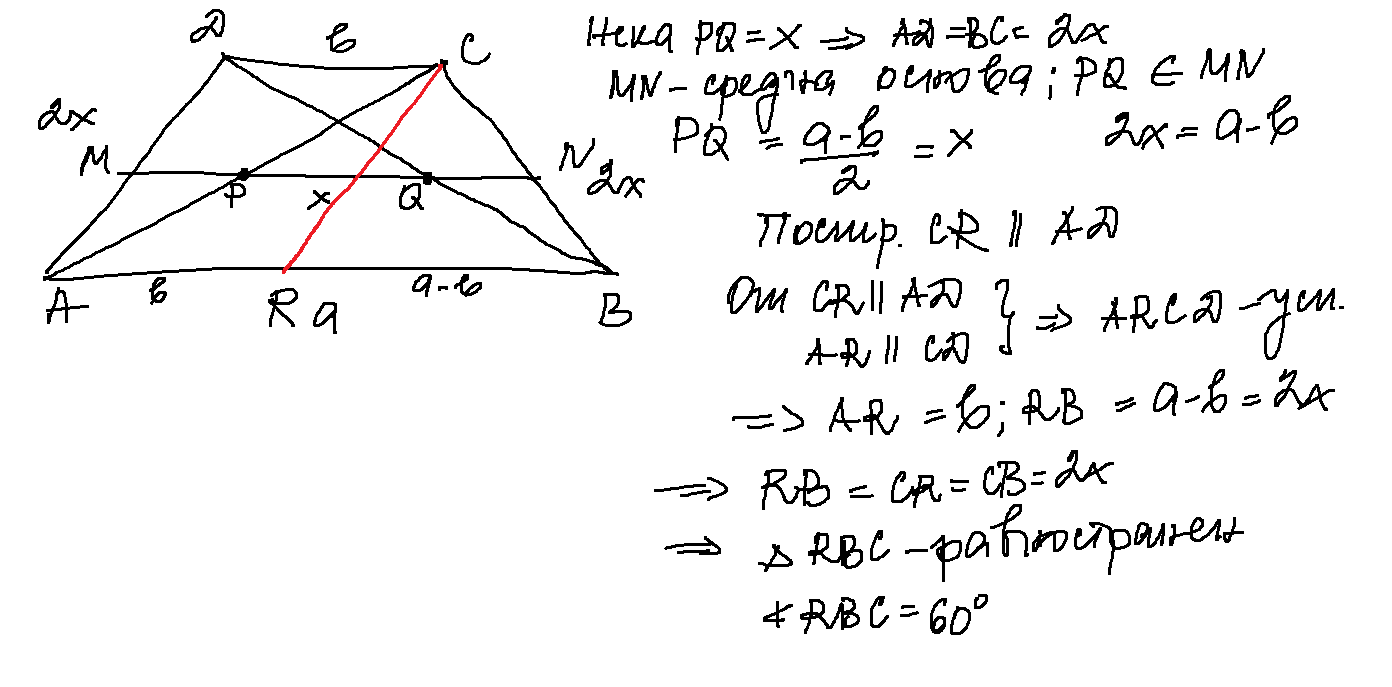 D
b
C
2x
M
P
x
Q
N
2x
A
b
R
a
a-b
B
Нека PQ = x ⇒ AD = BC = 2x
MN - средна основа; PQ ∈ MN
PQ = (a-b)/2 = x 2x = a-b
Постр. CR || AD
От CR || AD
AR || CD } ⇒ ARCD - усп.
⇒ AR = b; RB = a-b = 2x
⇒ RB = CR = CB = 2x
⇒ △ RBC - равностранен
∢ RBC = 60°